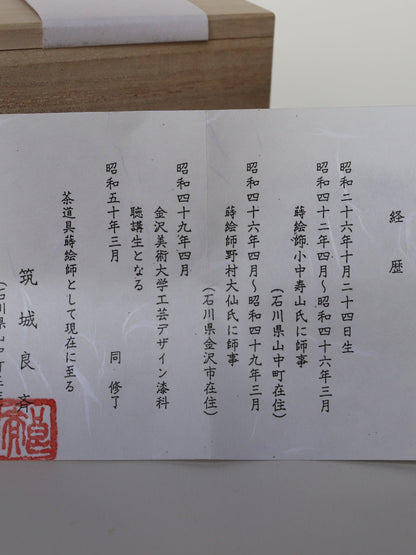 経歴
昭和二十六年十月二十四日生
昭和四十二年四月～昭和四十六年三月
蒔絵師小中寿山氏に師事
（石川県山中町在住）
昭和四十六年四月～昭和四十九年三月
蒔絵師野村大仙氏に師事
（石川県金沢市在住）
昭和四十九年四月
金沢美術大学工芸デザイン漆科
聴講生となる
昭和五十年三月　同　修了
茶道具蒔絵師として現在に至る
筑城良斉
（石川県山中町